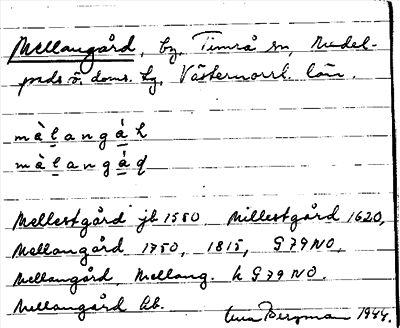 Mellangård, by, Timrå sn, Medel-
pads ö. doms. hg, Västernorrl. län.
màlangák
màlangáq
Mellestgård jb 1550 Millestgård 1620,
Mellangård 1750, 1815, G 79 NO,
Mellangård, Mellang. k G 79 NO.
Mellangård hb.
Bergman 1944.